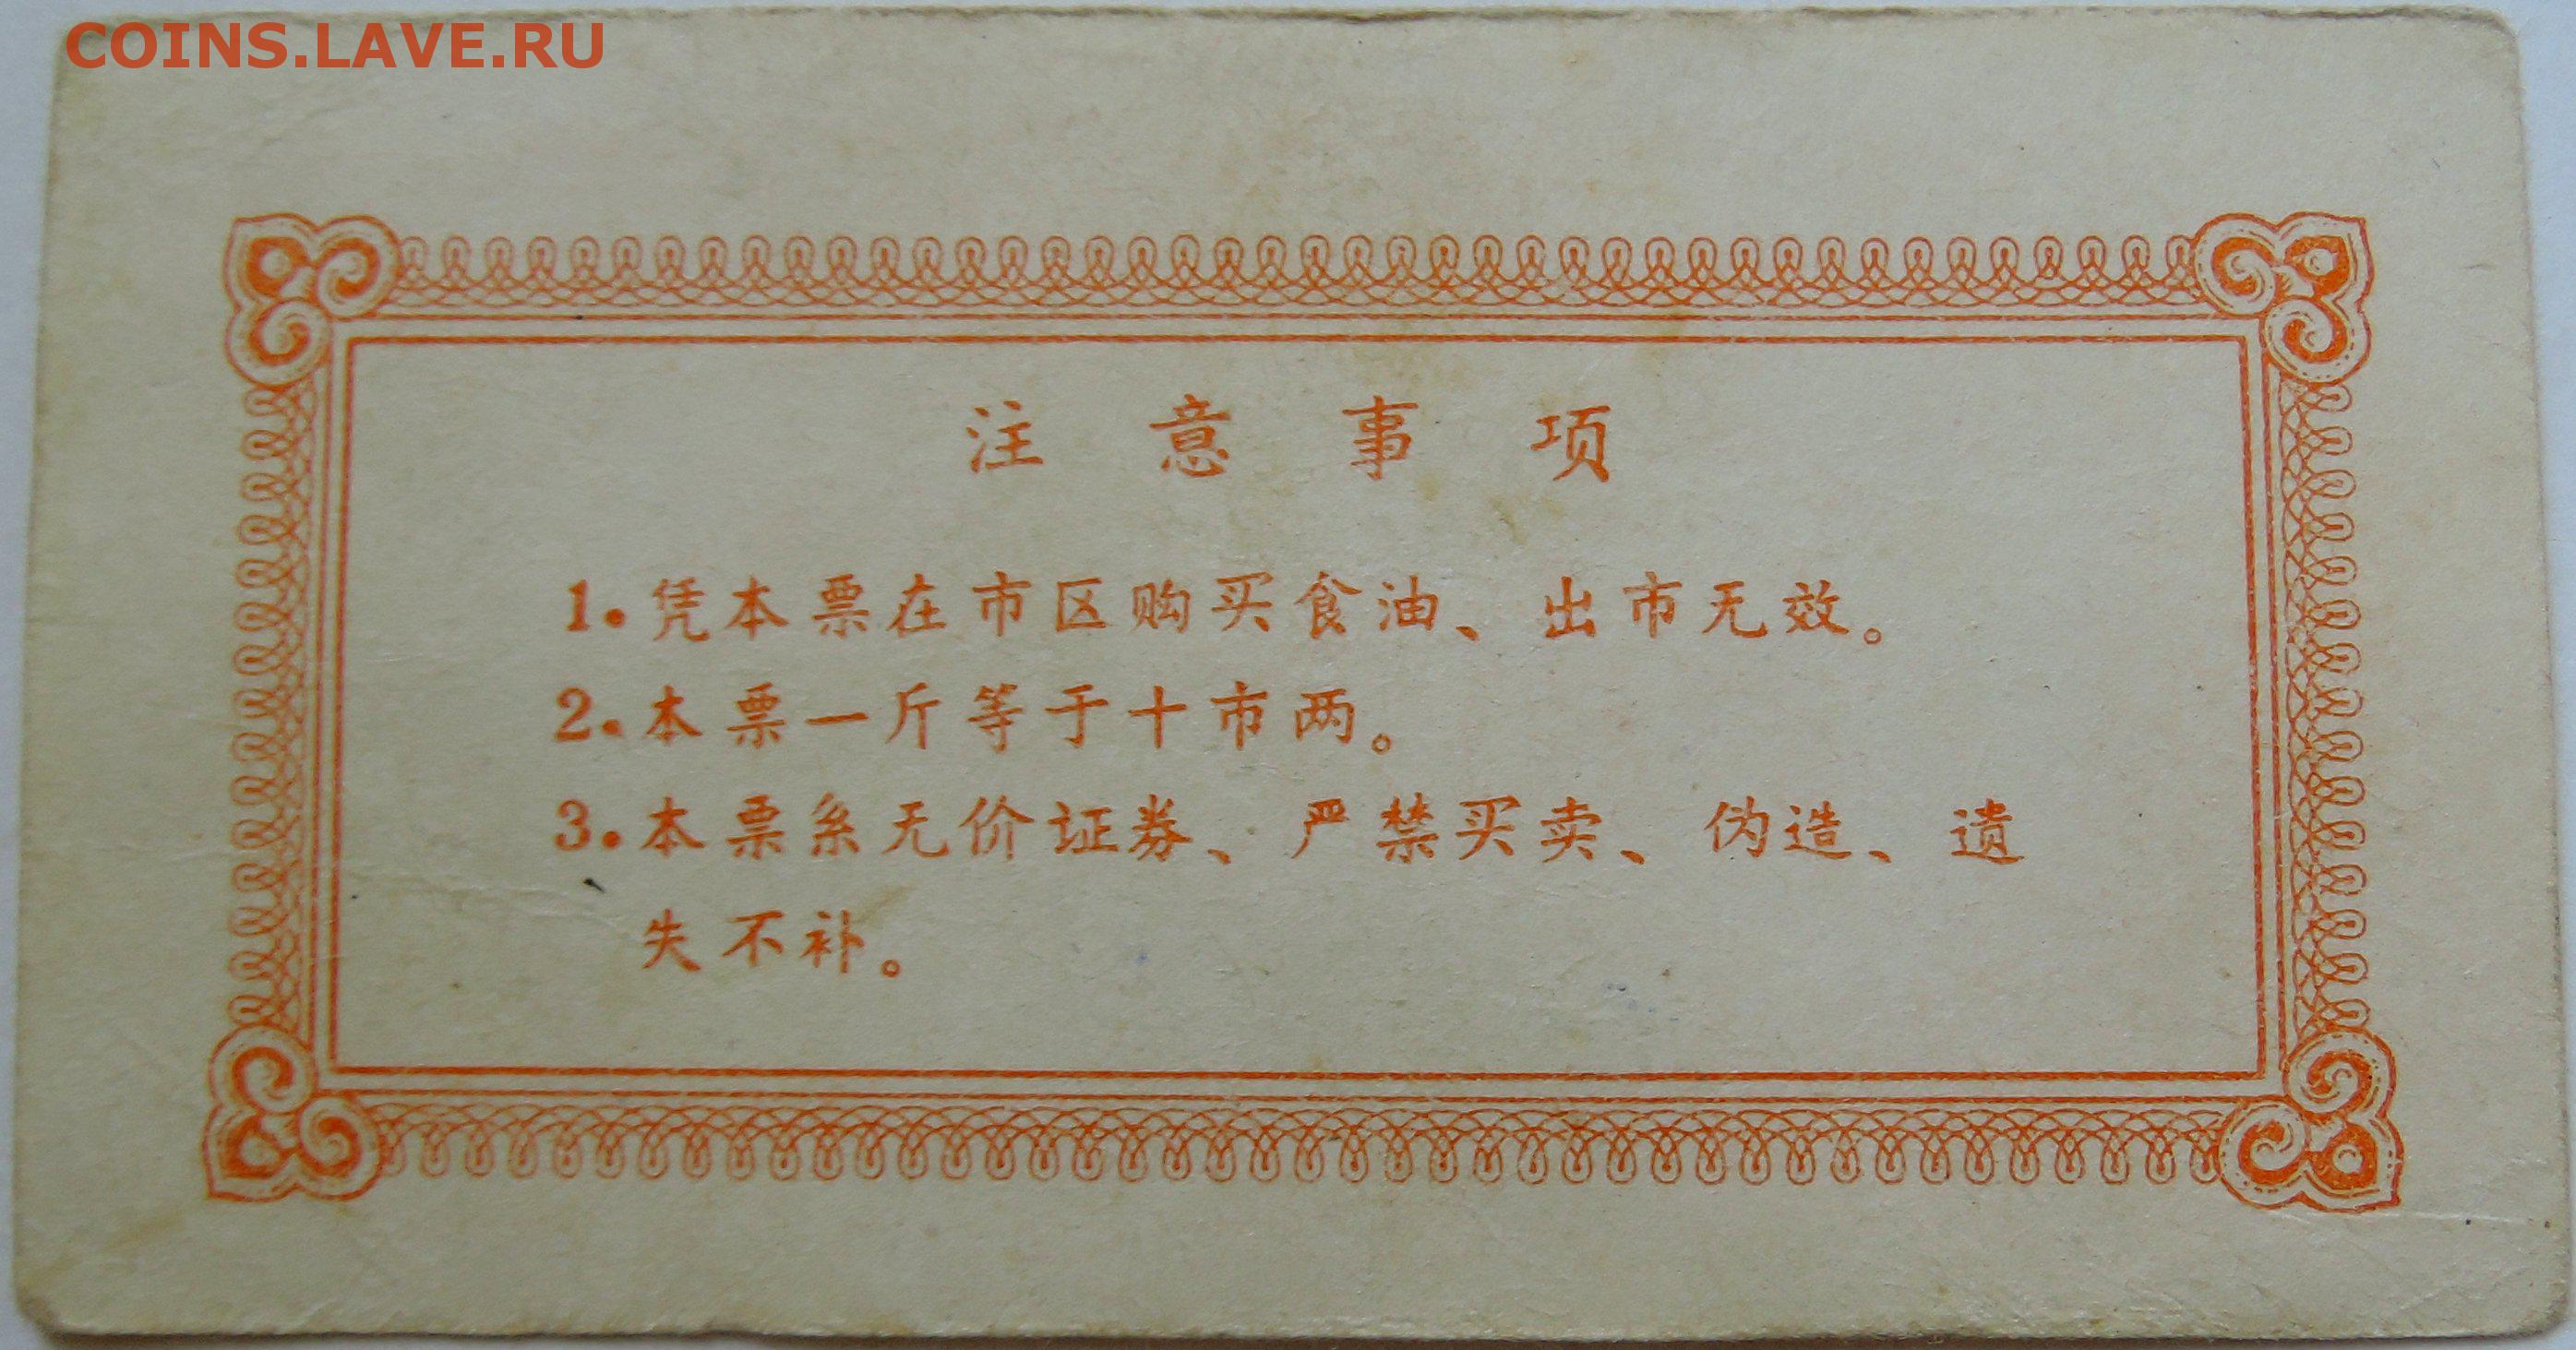 COINS.LAVE.RU
注意事项
1.凭本票在市区购买食油、出市无效。
2.本票一斤等于十市两。
3.本票系无价证券、严禁买卖、伪造、遗
失不补。